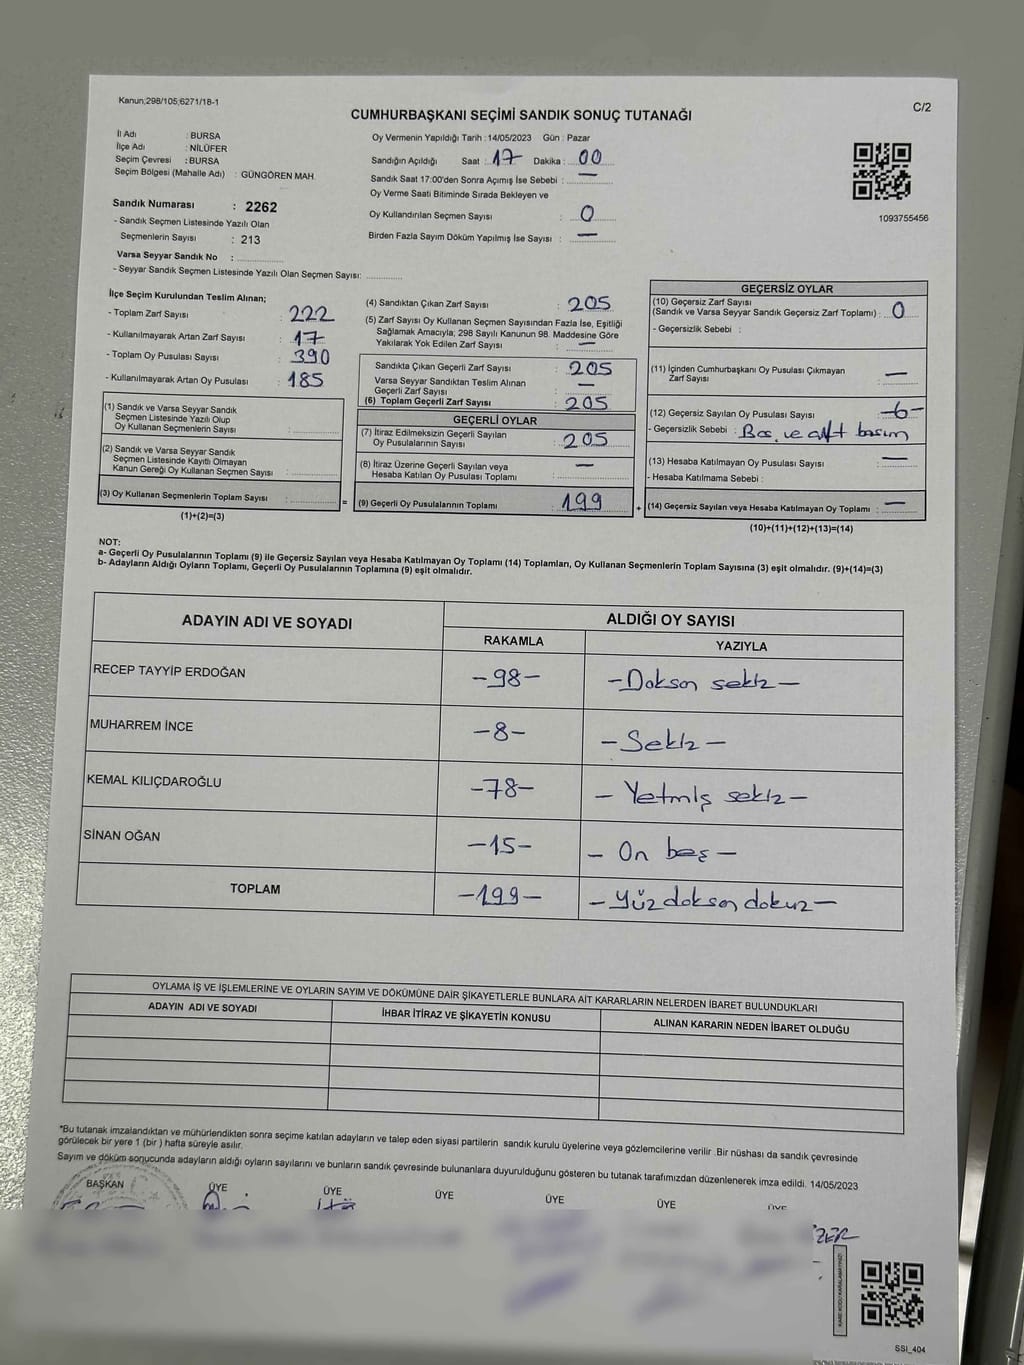 Kanun;298/105;6271/18-1
C/2
CUMHURBAŞKANI SEÇİMİ SANDIK SONUÇ TUTANAĞI
İl Adı : BURSA
İlçe Adı : NİLÜFER
Seçim Çevresi : BURSA
Seçim Bölgesi (Mahalle Adı) : GÜNGÖREN MAH.
Sandık Numarası : 2262
- Sandık Seçmen Listesinde Yazılı Olan
Seçmenlerin Sayısı : 213
Varsa Seyyar Sandık No :
- Seyyar Sandık Seçmen Listesinde Yazılı Olan Seçmen Sayısı:
Oy Vermenin Yapıldığı Tarih : 14/05/2023 Gün : Pazar
Sandığın Açıldığı Saat : 17 Dakika : 00
Sandık Saat 17:00'den Sonra Açımış İse Sebebi : —
Oy Verme Saati Bitiminde Sırada Bekleyen ve
Oy Kullandırılan Seçmen Sayısı : 0
Birden Fazla Sayım Döküm Yapılmış İse Sayısı : —
1093755456
İlçe Seçim Kurulundan Teslim Alınan;
- Toplam Zarf Sayısı : 222
- Kullanılmayarak Artan Zarf Sayısı : 17
- Toplam Oy Pusulası Sayısı : 390
- Kullanılmayarak Artan Oy Pusulası : 185
(1) Sandık ve Varsa Seyyar Sandık
Seçmen Listesinde Yazılı Olup
Oy Kullanan Seçmenlerin Sayısı :
(2) Sandık ve Varsa Seyyar Sandık
Seçmen Listesinde Kayıtlı Olmayan
Kanun Gereği Oy Kullanan Seçmen Sayısı :
(3) Oy Kullanan Seçmenlerin Toplam Sayısı : =
(1)+(2)=(3)
(4) Sandıktan Çıkan Zarf Sayısı : 205
(5) Zarf Sayısı Oy Kullanan Seçmen Sayısından Fazla İse, Eşitliği
Sağlamak Amacıyla, 298 Sayılı Kanunun 98. Maddesine Göre
Yakılarak Yok Edilen Zarf Sayısı : —
Sandıkta Çıkan Geçerli Zarf Sayısı : 205
Varsa Seyyar Sandıktan Teslim Alınan
Geçerli Zarf Sayısı : —
(6) Toplam Geçerli Zarf Sayısı : 205
GEÇERLİ OYLAR
(7) İtiraz Edilmeksizin Geçerli Sayılan
Oy Pusulalarının Sayısı : 205
(8) İtiraz Üzerine Geçerli Sayılan veya
Hesaba Katılan Oy Pusulası Toplamı : —
(9) Geçerli Oy Pusulalarının Toplamı : 199 +
GEÇERSİZ OYLAR
(10) Geçersiz Zarf Sayısı
(Sandık ve Varsa Seyyar Sandık Geçersiz Zarf Toplamı) : 0
- Geçersizlik Sebebi :
(11) İçinden Cumhurbaşkanı Oy Pusulası Çıkmayan
Zarf Sayısı : —
(12) Geçersiz Sayılan Oy Pusulası Sayısı : -6-
- Geçersizlik Sebebi : Boş. ve çift basım
(13) Hesaba Katılmayan Oy Pusulası Sayısı : —
- Hesaba Katılmama Sebebi :
(14) Geçersiz Sayılan veya Hesaba Katılmayan Oy Toplamı : —
(10)+(11)+(12)+(13)=(14)
NOT:
a- Geçerli Oy Pusulalarının Toplamı (9) ile Geçersiz Sayılan veya Hesaba Katılmayan Oy Toplamı (14) Toplamları, Oy Kullanan Seçmenlerin Toplam Sayısına (3) eşit olmalıdır. (9)+(14)=(3)
b- Adayların Aldığı Oyların Toplamı, Geçerli Oy Pusulalarının Toplamına (9) eşit olmalıdır.
ADAYIN ADI VE SOYADI ALDIĞI OY SAYISI
RAKAMLA YAZIYLA
RECEP TAYYİP ERDOĞAN -98- -Doksan sekiz-
MUHARREM İNCE -8- -Sekiz-
KEMAL KILIÇDAROĞLU -78- -Yetmiş sekiz-
SİNAN OĞAN -15- -On beş-
TOPLAM -199- -Yüzdoksan dokuz-
OYLAMA İŞ VE İŞLEMLERİNE VE OYLARIN SAYIM VE DÖKÜMÜNE DAİR ŞİKAYETLERLE BUNLARA AİT KARARLARIN NELERDEN İBARET BULUNDUKLARI
ADAYIN ADI VE SOYADI İHBAR İTİRAZ VE ŞİKAYETİN KONUSU ALINAN KARARIN NEDEN İBARET OLDUĞU
*Bu tutanak imzalandıktan ve mühürlendikten sonra seçime katılan adayların ve talep eden siyasi partilerin sandık kurulu üyelerine veya gözlemcilerine verilir .Bir nüshası da sandık çevresinde
görülecek bir yere 1 (bir ) hafta süreyle asılır.
Sayım ve döküm sonucunda adayların aldığı oyların sayılarını ve bunların sandık çevresinde bulunanlara duyurulduğunu gösteren bu tutanak tarafımızdan düzenlenerek imza edildi. 14/05/2023
BAŞKAN ÜYE ÜYE ÜYE ÜYE ÜYE ÜYE
SSI_404